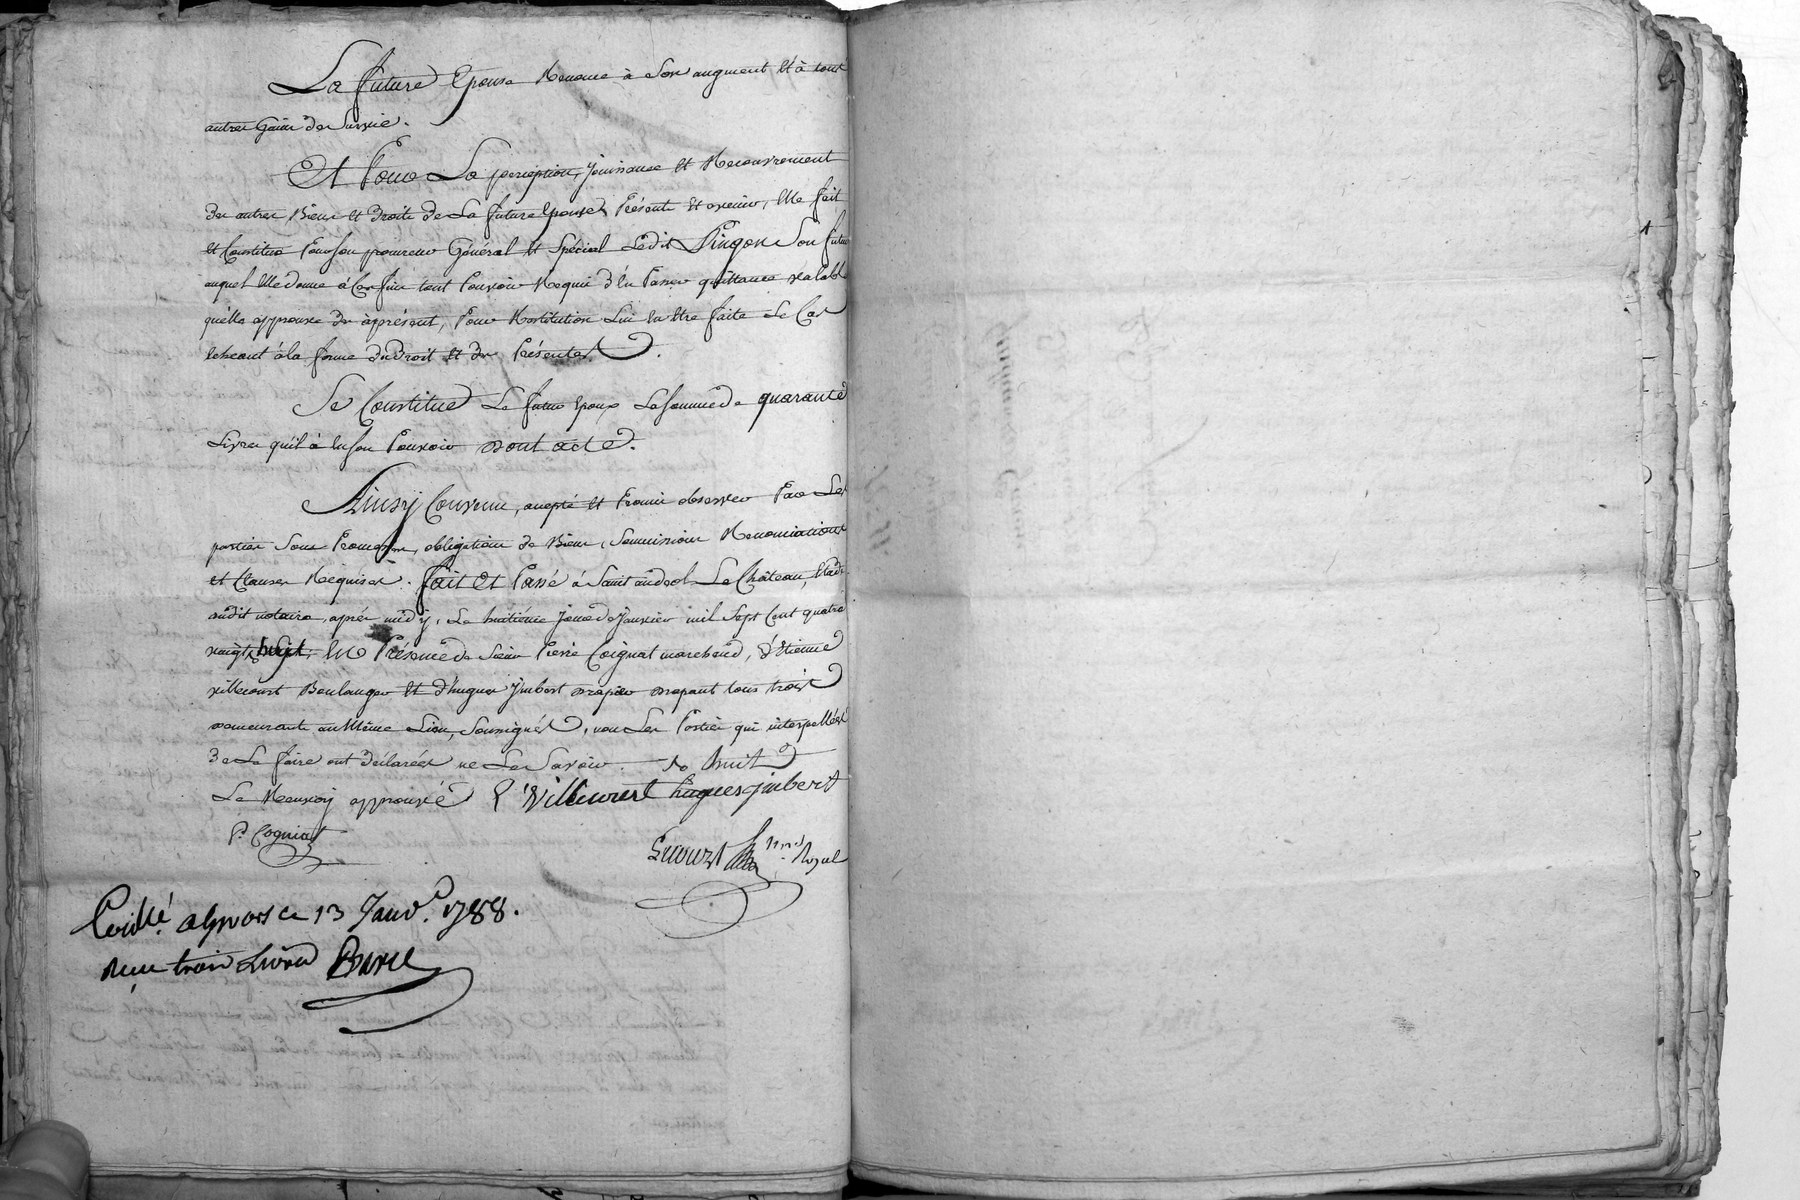 La future Epouse Renonce à son augment Et à tout
autres Gains de Survie.
Et Pour La perception, jouissance et Recouvrement
des autres Biens et Droits de La future Epouse Présents et avenir, Elle fait
et Constitue Pour son procureur Général et Spécial Ledit Pingon Son futur
auquel Elle donne à Ces fins tout Pouvoir Requis d'En Passer quittance valable
qu'elle approuve dès àprésent, Pour Restitution Lui En Etre faite Le Cas
Echeant à la forme du Droit et des Présentes.
Se Constitue Le futur Epoux La somme de quarante
Livres qu'il à En son Pouvoir dont acte.
Ainsy Convenu, accepté et Promis observer Par Les
parties Sous Promesses, obligation de Biens, Soumissions Renonciations
et Clauses Requises. fait Et Passé à Saint andeol Le Château, Etude
dudit notaire, après midÿ, Le huitième Jour de Janvier mil Sept Cent quatre
vingts huit, En Présence de sieur Pierre Coignat marchand, d'Etienne
villecourt Boulanger et d'hugues Jmbert drapier drapant tous trois
demeurants au Même Lieu, Soussignés, non Les Parties qui interpellées
De Le faire ont déclarées ne Le Savoir. huit
Le Renvoy approuvé E Villecourt hugues jmbert
P. Cogniat
Royal
Con[t]lé. a Givors ce 13 Janv. 1788.
Reçu trois Livres